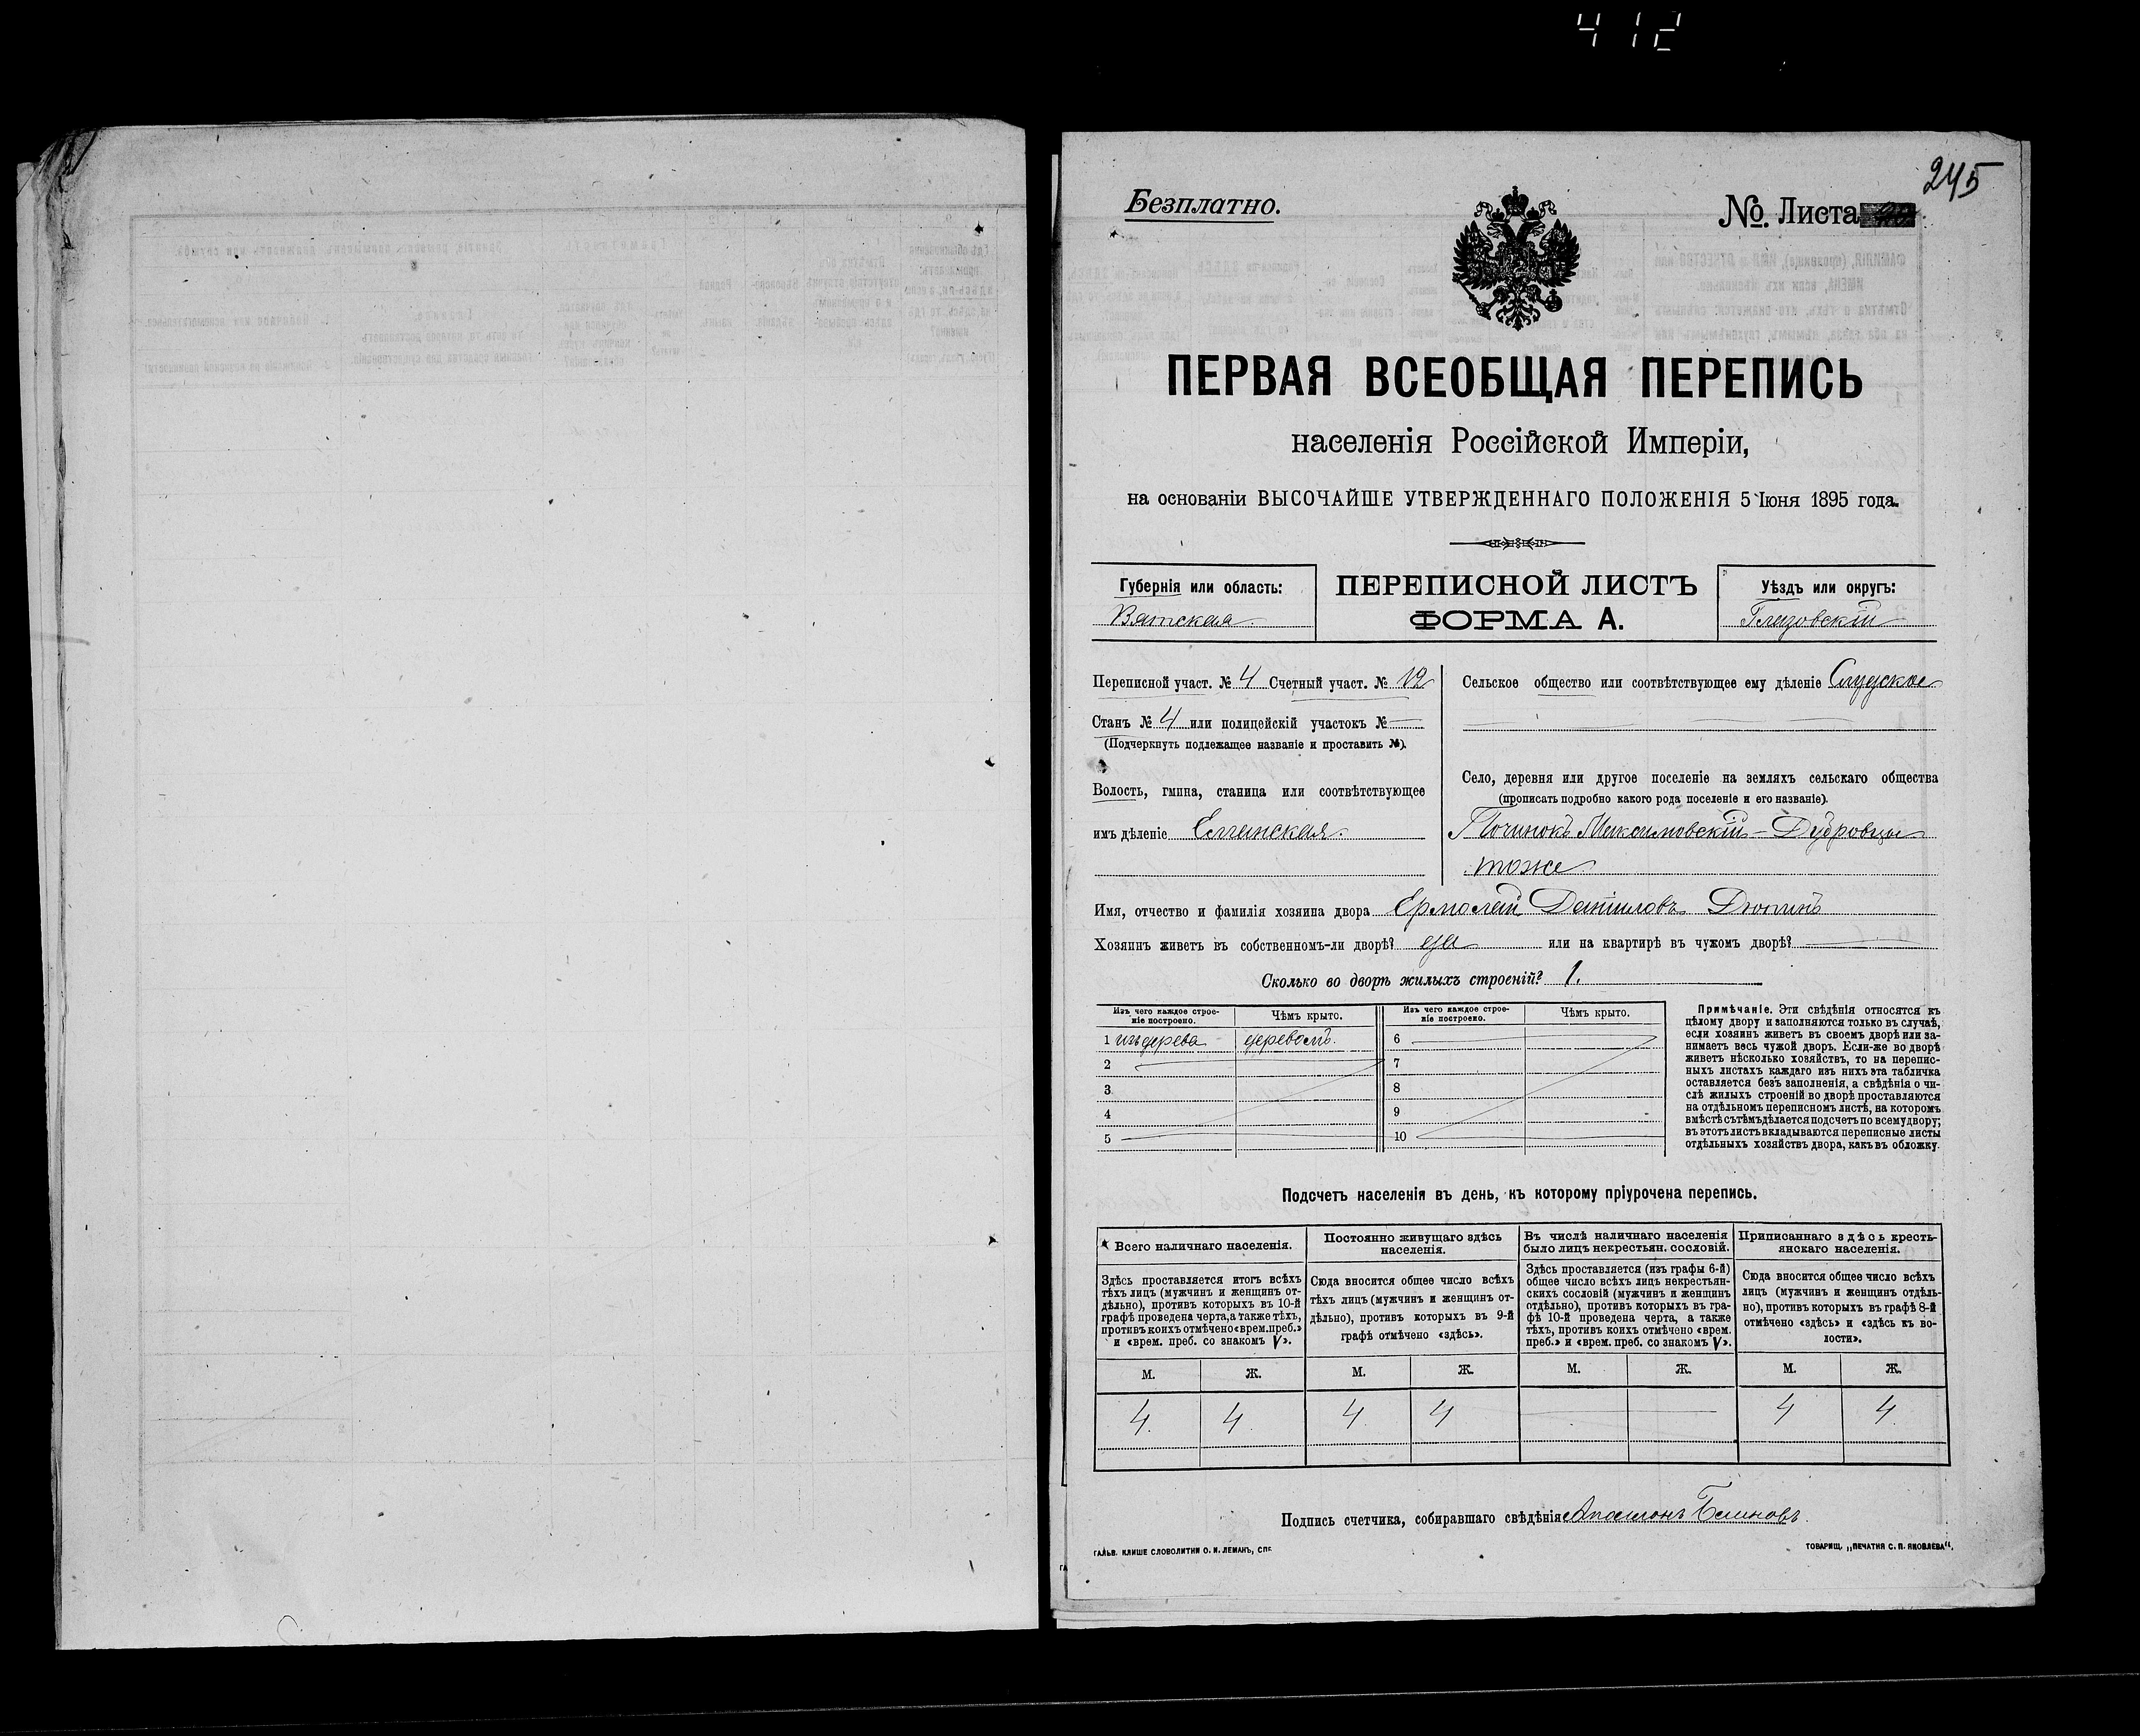 412
245
Безплатно.
№ Листа
ПЕРВАЯ ВСЕОБЩАЯ ПЕРЕПИСЬ
населенія Россійской Имперіи,
на основаніи ВЫСОЧАЙШЕ УТВЕРЖДЕННАГО ПОЛОЖЕНІЯ 5 Іюня 1895 года.
Губернія или область:
Вятская
ПЕРЕПИСНОЙ ЛИСТЪ
ФОРМА А.
Уѣздъ или округъ:
Глазовскій
Переписной участ. № 4 Счетный участ. № 12
Станъ № 4 или полицейскій участокъ № —
(Подчеркнуть подлежащее названіе и проставить №).
Волость, гмина, станица или соотвѣтствующее
имъ дѣленіе Елганская.
Сельское общество или соотвѣтствующее ему дѣленіе Слудское
Село, деревня или другое поселеніе на земляхъ сельскаго общества
(прописать подробно какого рода поселеніе и его названіе).
Починокъ Максимовскій – Дубровцы
тоже
Имя, отчество и фамилія хозяина двора Ермолай Даниловъ Дюпинъ
Хозяинъ живетъ въ собственномъ-ли дворѣ? да или на квартирѣ въ чужомъ дворѣ? —
Сколько во дворѣ жилыхъ строеній? 1.
Изъ чего каждое строе-
ніе построено.
Чѣмъ крыто.
Изъ чего каждое строе-
ніе построено.
Чѣмъ крыто.
1 изъ дерева деревомъ. 6
2 7
3 8
4 9
5 10
Примѣчаніе. Эти свѣдѣнія относятся къ
цѣлому двору и заполняются только въ случаѣ,
если хозяинъ живетъ въ своемъ дворѣ или за-
нимаетъ весь чужой дворъ. Если-же во дворѣ
живетъ нѣсколько хозяйствъ, то на перепис-
ныхъ листахъ каждаго изъ нихъ эта табличка
оставляется безъ заполненія, а свѣдѣнія о чи-
слѣ жилыхъ строеній во дворѣ проставляются
на отдѣльномъ переписномъ листѣ, на которомъ
вмѣстѣ съ тѣмъ дѣлается подсчетъ по всему двору;
въ этотъ листъ вкладываются переписные листы
отдѣльныхъ хозяйствъ двора, какъ въ обложку.
Подсчетъ населенія въ день, къ которому пріурочена перепись.
Всего наличнаго населенія.
Здѣсь проставляется итогъ всѣхъ
тѣхъ лицъ (мужчинъ и женщинъ от-
дѣльно), противъ которыхъ въ 10-й
графѣ проведена черта, а также тѣхъ,
противъ коихъ отмѣчено «врем. преб.»
и «врем. преб. со знакомъ V».
Постоянно живущаго здѣсь
населенія.
Сюда вносится общее число всѣхъ
тѣхъ лицъ (мужчинъ и женщинъ от-
дѣльно), противъ которыхъ въ 9-й
графѣ отмѣчено «здѣсь».
Въ числѣ наличнаго населенія
было лицъ некрестьян. сословій.
Здѣсь проставляется (изъ графы 6-й)
общее число всѣхъ лицъ некрестьян-
скихъ сословій (мужчинъ и женщинъ
отдѣльно), противъ которыхъ въ гра-
фѣ 10-й проведена черта, а также
тѣхъ, противъ коихъ отмѣчено «врем.
преб.» и «врем. преб. со знакомъ V».
Приписаннаго здѣсь кресть-
янскаго населенія.
Сюда вносится общее число всѣхъ
лицъ (мужчинъ и женщинъ отдѣль-
но), противъ которыхъ въ графѣ 8-й
отмѣчено «здѣсь» и «здѣсь къ во-
лости».
М. Ж. М. Ж. М. Ж. М. Ж.
4. 4. 4. 4 — — 4 4.
Подпись счетчика, собиравшаго свѣдѣнія Аполлонъ Блиновъ.
ГАЛЬВ. КЛИШЕ СЛОВОЛИТНИ О. И. ЛЕМАНЪ, СПБ.
ТОВАРИЩ. „ПЕЧАТНЯ С. П. ЯКОВЛЕВА“.